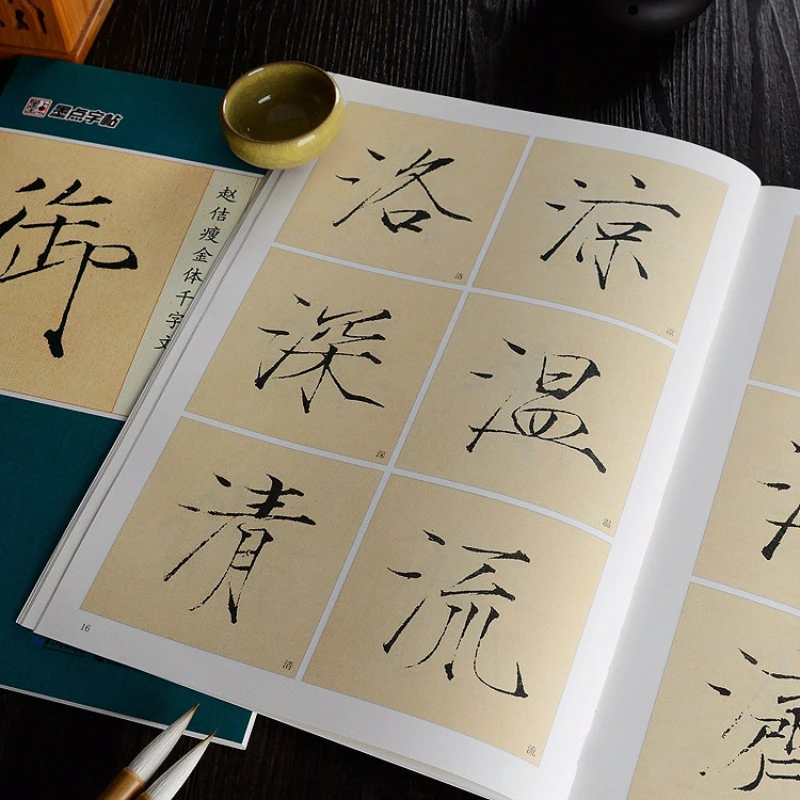 墨点字帖
御
赵佶瘦金体千字文
洛 涼
洛
深 温
深 温
清 流
清 流
16
濟